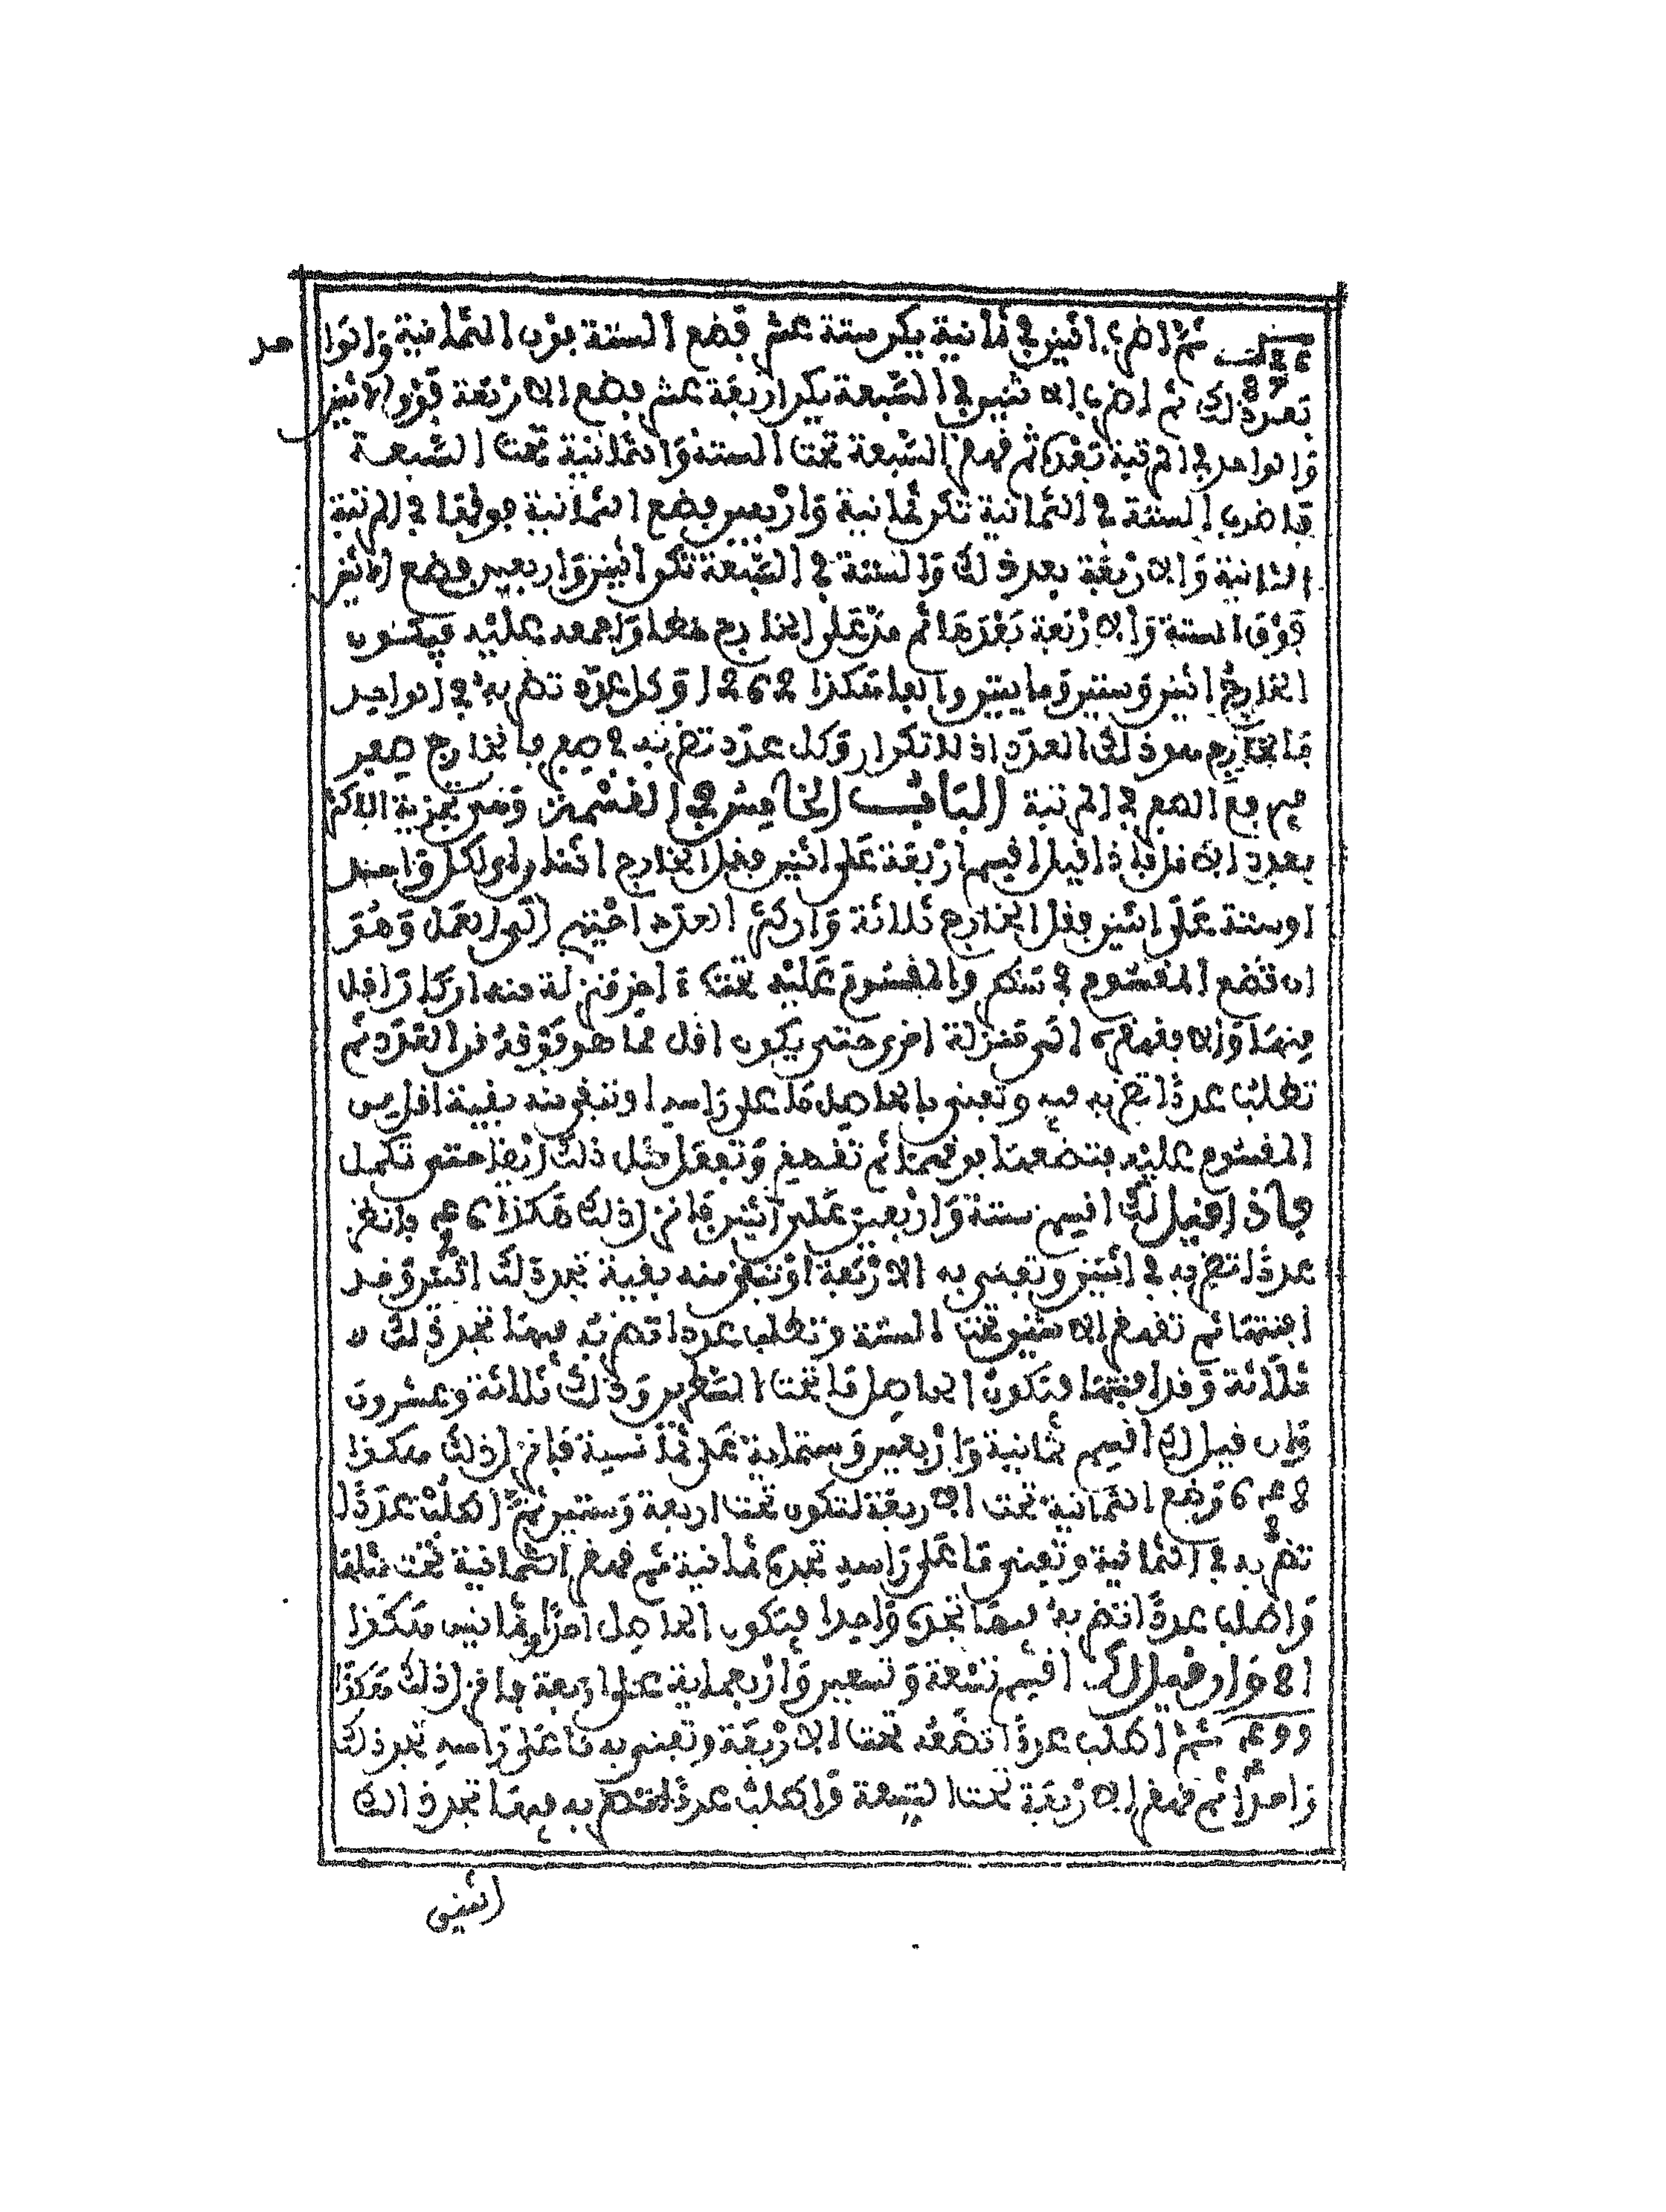 ثم اضرب اثنين في ثمانية يكن ستة عشر فضع الستة فوق الثمانية والواحد
بعد ذلك ثم اضرب الاثنين في السبعة يكن اربعة عشر فضع الاربعة فوق الاثنين
والواحد في المرتبة بعدها ثم قهقر السبعة تحت الستة والثمانية تحت السبعة
فاضرب الستة في الثمانية تكن ثمانية واربعين فضع الثمانية فوقها في المرتبة
الثانية والاربعة بعد ذلك والستة في السبعة تكن اثنين واربعين فضع الاثنين
فوق الستة والاربعة بعدها ثم مد على الخارج خطا واجمعه عليه فيكون
الخارج اثنين وستين ومايتين والفا هكذا 1262 وكل عدد تضربه في الواحد
فالخارج هو ذلك العدد اذ لا تكرار وكل عدد تضربه في صفر فالخارج صفر
فيرفع الصفر في المرتبة الباب الخامس في القسمة وهي تجزية الاكثر
بعدد الاقل فاذا قيل اقسم اربعة على اثنين فقل الخارج اثنان اي لكل واحد
او ستة على اثنين فقل الخارج ثلاثة وان كثر العدد احتيج الى العمل وهو
ان تضع المقسوم في سطر والمقسوم عليه تحت اخر منزلة منه ان كان اقل
منها والا فقهقره الى منزلة اخرى حتى يكون اقل مما هو فوقه من العدد ثم
تطلب عددا تضربه فيه وتفني بالحاصل ما على راسه او تبقي منه بقية اقل من
المقسوم عليه فتضعها فوقها ثم تقهقر وتفعل مثل ذلك ايضا حتى تكمل
فاذا قيل لك اقسم ستة واربعين على اثنين فانزل ذلك هكذا 46 فانظر
2
عددا تضربه في اثنين وتفني به الاربعة او تبقي منه بقية تجد ذلك اثنين وقد
افنتها ثم تقهقر الاثنين تحت الستة وتطلب عددا تضربه فيها تجد ذلك
ثلاثة وقد افنتها فتكون الحاصل ما تحت السطر وذلك ثلاثة وعشرون
وان قيل لك اقسم ثمانية واربعين وستماية على ثمانية فانزل ذلك هكذا
648 وضع الثمانية تحت الاربعة لتكون تحت اربعة وستين ثم اطلب عددا
8
تضربه في الثمانية وتفني ما على راسه تجده ثمانية ثم قهقر الثمانية تحت مثلها
واطلب عددا تضربه فيها تجده واحدا فيكون الحاصل احدا وثمانين هكذا
81 وان قيل لك اقسم تسعة وتسعين واربعماية على اربعة فانزل ذلك هكذا
499 ثم اطلب عددا تضعه تحت الاربعة وتفني به ما على راسه تجد ذلك
واحدا ثم قهقر الاربعة تحت التسعة واطلب عددا تضربه فيها تجد ذلك
اثنين